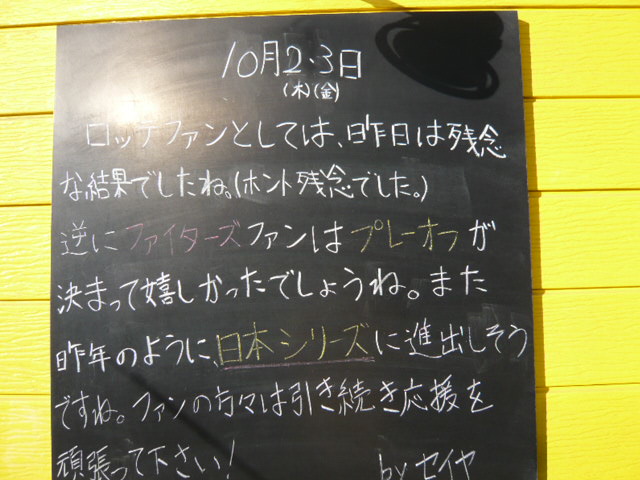 10月2・3日
(木)(金)
ロッテファンとしては、昨日は残念
な結果でしたね。(ホント残念でした。)
逆にファイターズファンはプレーオフが
決まって嬉しかったでしょうね。また
昨年のように、日本シリーズに進出しそう
ですね。ファンの方々は引き続き応援を
頑張って下さい!
by セイヤ